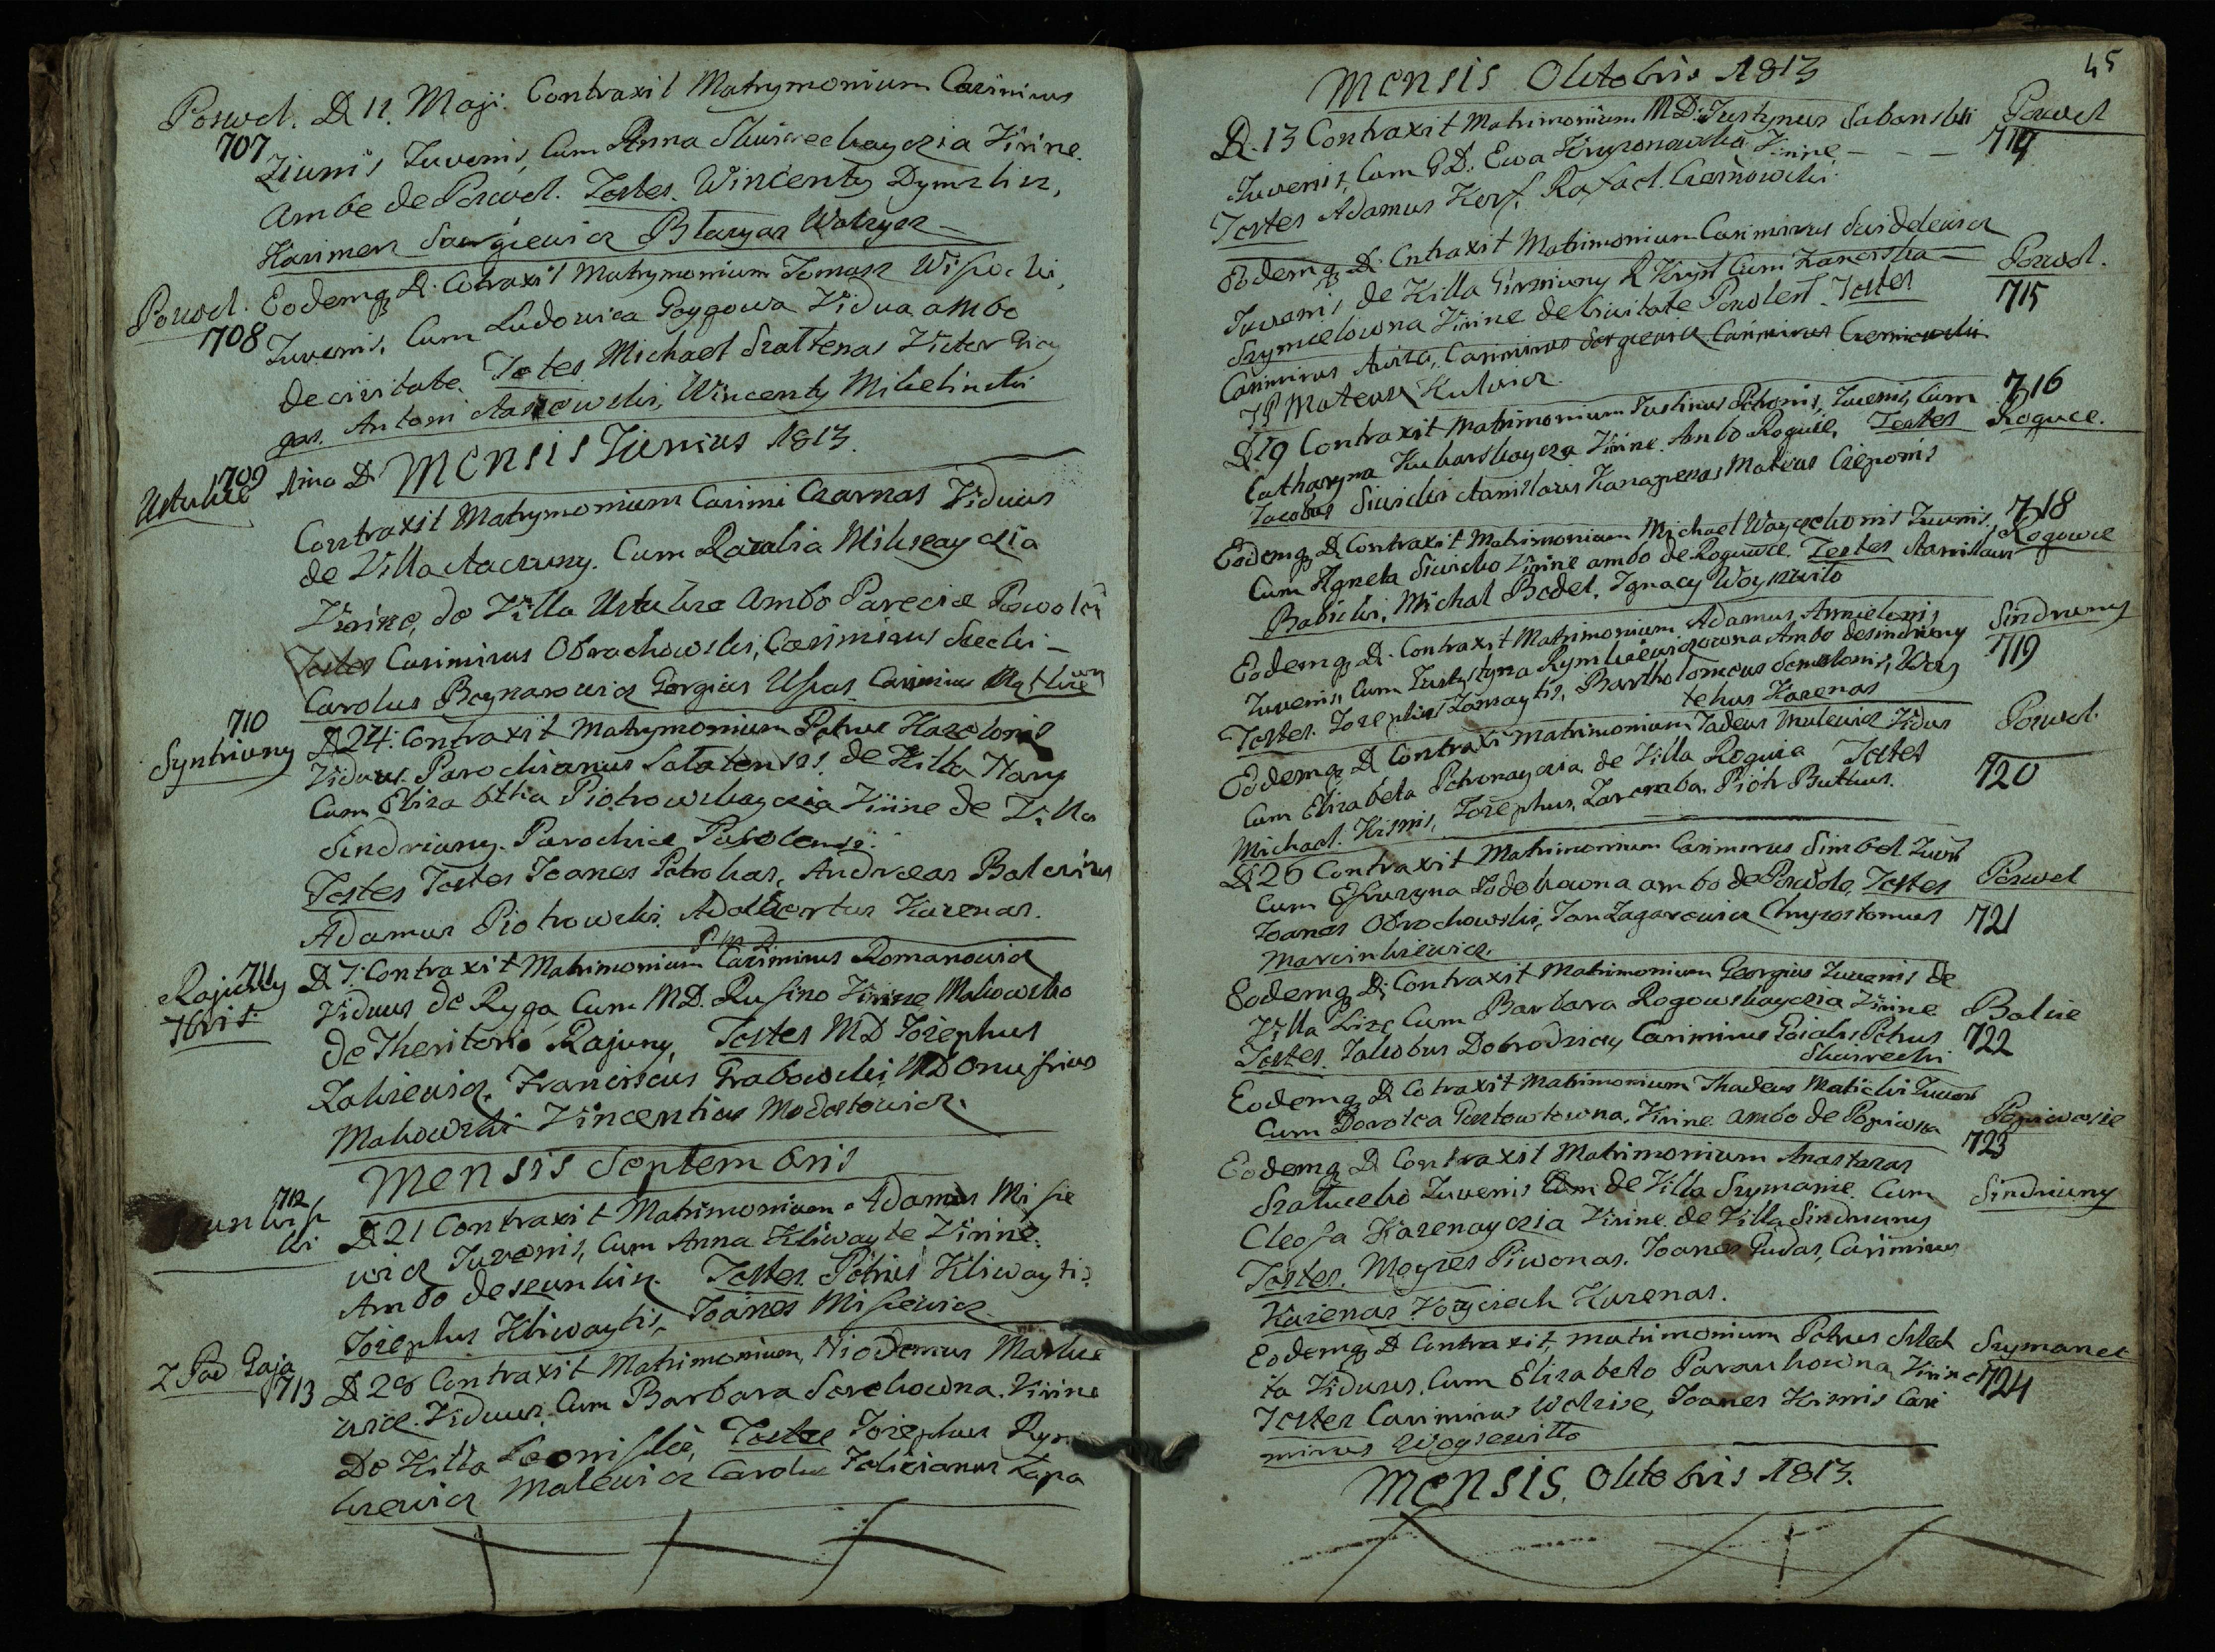 Poswol. D. 12. Maji. Contraxit Matrymonium Casimirus
707 Ziunis Iuvenis, Cum Anna Skuireckayczia Virine.
Ambe de Poswol. Testes. Wincenty Dymzlisz,
Kazimerz Sawgiewicz Blazyas Walzycz
Poswol. Eodemq D. Cotraxit Matrymonium Tomasz Wisocki,
708 Iuvenis, Cum Ludowica Goygowa Vidua ambo
de civitate. Testes Michael Szattenas Victor Giay
gas. Antoni Stasiewski, Wincenty Mikelinski
709 Ustukie Aina D. Mensis Iunius 1813.
Contraxit Matrymonium Casimi Czarnas Viduus
de Villa Staczuny. Cum Rozalia Mikszayczia
Virine, de Villa Ustukie Ambo Parecie Poswolen
Testes Casimirus Obrachowski, Casimirus Siecki
Carolus Boynarowicz Gorgius Uspas Casimirus
710
Syntriuny D 24. Contraxit Matrymonium Petrus Hazelonis
Viduus. Parochianus Salatensis. de Villa Nary
Cum Elizabetha Piotrowskayczia Virine de Villa
Sindriuny. Parochiae Posvolensi.
Testes Testes Ioanes Petrokas, Andreas Balczius
Adamus Piotrowski. Adalbertus Kazenas.
711 Rajuny D 7. Contraxit Matrimonium P M D Casimirus Romanowicz
7bris. Viduus de Ryga Cum MD. Rusino Virine Makowska
de Theritorio Rajuny, Testes MD Iozephus
Zakiewicz. Franciscus Grabowski, MD Onufrius
Makowski Vincentius Modestowicz.
Mensis Septembris
712
D 21 Contraxit Matrimonium Adamus Misie
wicz Iuvenis, Cum Anna Kliwayte Virine.
Ambo deseunkisz. Testes. Petrus Kliwaytis
Iozephus Kliwaytis, Ioanes Misiewicz
Z Pod Gaja
713 D 28 Contraxit Matrimonium, Niodemus Markie
wicz. Viduus, Cum Barbara Sarekowna. Virine
De Villa Leoniszki, Testes Iozephus Rym
kiewicz Malewicz Carolus Felicianus Lapa
45
Mensis Oktobris 1813
D. 13 Contraxit Matrimonium MD. Iustynus Sabanski Poswol
Iuvenis, Cum GD. Ewa Kryzonowska Virine 714
Testes Adamus Korf. Rafael. Czernowski.
Eodemq D. Cntraxit Matrimonium Casimirus Swidelewicz
Iuvenis de Villa Girniuny R Kryst Cum Franciska Poswol.
Szymcelowna Virine de Civitate Poswolens. Testes 715
Casimirus Auza, Casimirus Sorgiewicz Casimirus Czerniewski
JP Mateusz Kulwicz.
D 19 Contraxit Matrimonium Iustinus Petronis, Iuvenis, Cum 716
Catharyna Kucharskayczia Virine. Ambo Roguie. Testes Roguce.
Iacobus Siwicki Stanislaus Kanapenas Mateus Czeponis
Eodemq D Contraxit Matrimonium Michael Wayczchonis Iuvenis, 718
Cum Agneta Siwicka Virine ambo de Roguwie. Testes Stanislaus Roguwie
Babicki, Michal Bedel, Ignacy Woyszwilo
Eodemq D. Contraxit Matrimonium Adamus, Armielonis, Sindriuny
Iuvenis, Cum Iustystyna Rymkiewiczowna Ambo desindriuny 719
Testes. Iozephus Zamaytis, Bartholomeus Samelonis, Woy
tekus Kazenas
Eodemq D Contraxi Matrimonium Tadeus Mulewicz Vidus Poswol.
Cum Elizabeta Petronayczia de Villa Roguia Testes 720
Michael. Kisnis, Iozephus. Zaremba. Piotr Buttkus.
D 26 Contraxit Matrimonium Casimirus Simbel Iuvnis
Cum Efruzyna Fodekowna ambo de Poswole, Testes Poswol
Ioanes Obrochowski, Ian Zagarewicz Chryzostomus 721
Marcinkiewicz.
Eodemq D. Contraxit Matrimonium Georgius Iuvenis de
Villa Lize Cum Barbara Rogowskayczia Virine Balne
Testes. Iakobus Dobrodzicy Casimirus Goialis Petrus 722
Skuirecki
Eodemq D Cotraxit Matrimonium Thadeus Maticki Iuvenis
Cum Dorotea Gustowtowna. Virine ambo de Popiwsza Popiwesie
723
Eodemq D Contraxit Matrimonium Anastazas
Szatucelio Iuvenis de Villa Szymanie. Cum Sindriuny
Cleofa Kazenayczia Virine de Villa Sindriuny
Testes. Moyzes Piwonas. Ioanes Gudas, Casimirus
Kazenas Voyciech Kazenas.
Eodemq D Contraxit, matrimonium Petrus Sleck Szymanet
ta Viduus. Cum Elizabeta Paraukowna Virine 724
Testes Casimirus Walzise, Ioanes Kisnis Casi
mirus Woysewitto
Mensis. Oktobris 1813.